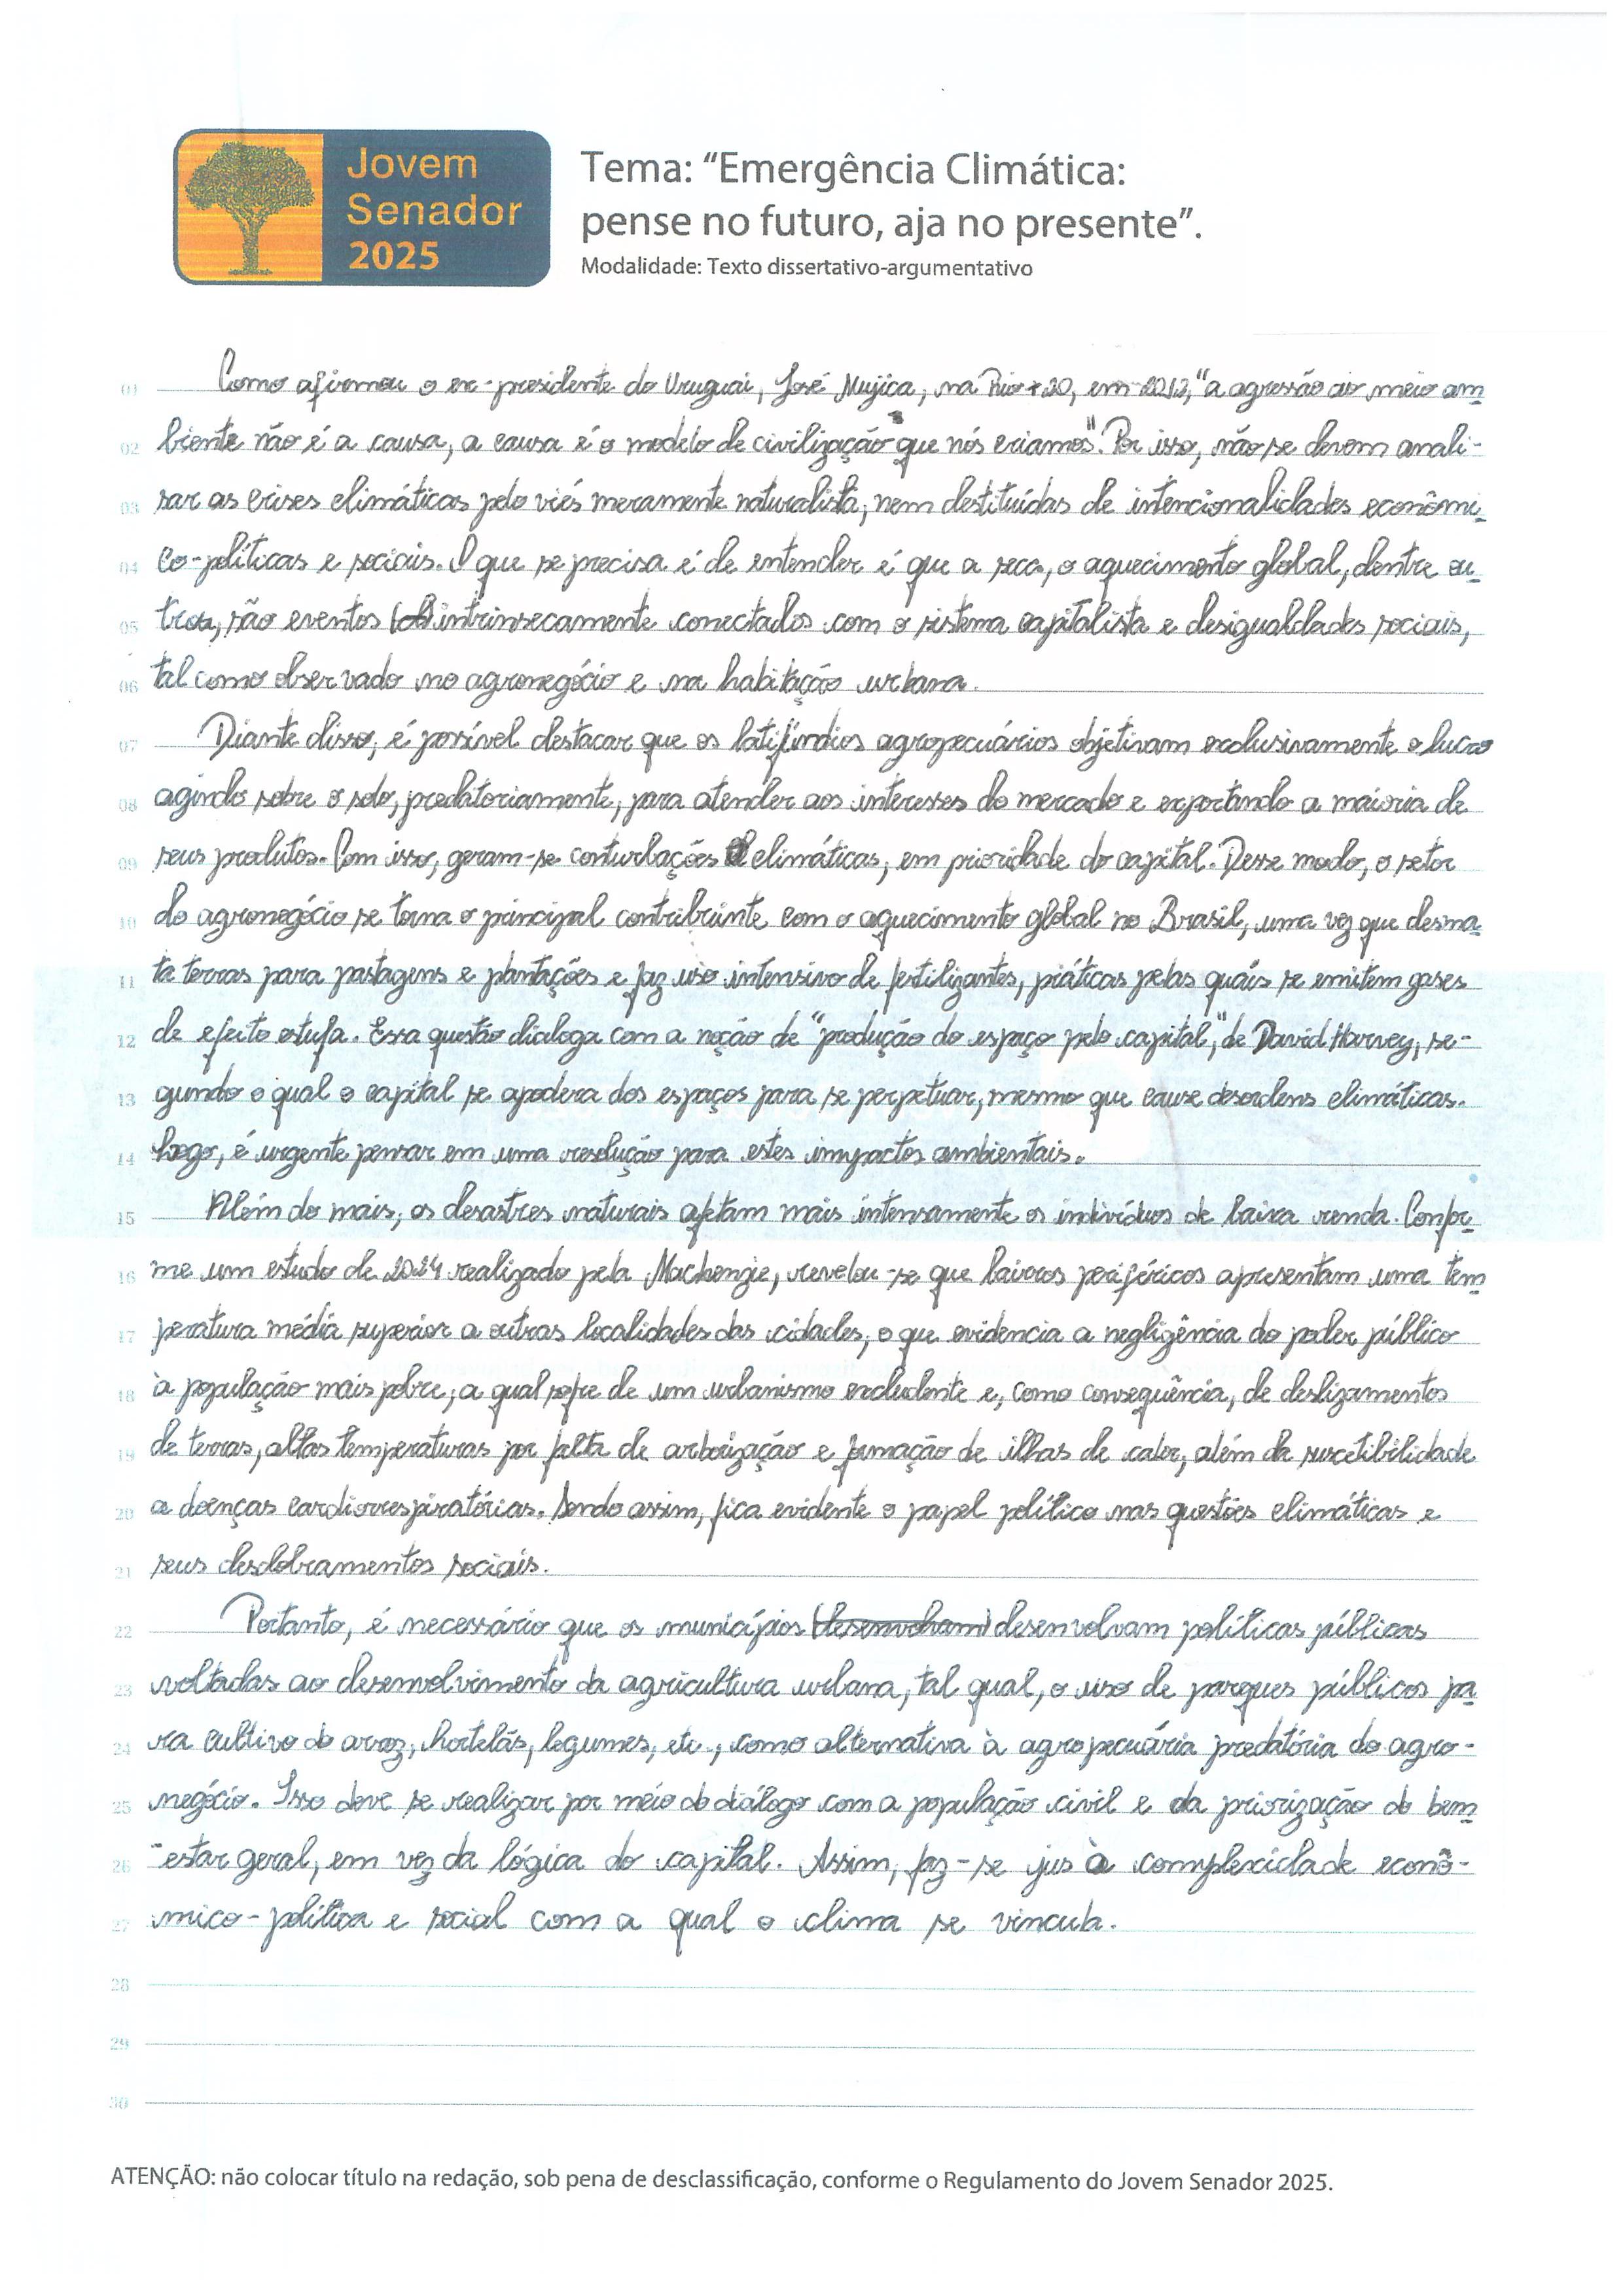 Jovem
Senador
2025
Tema: “Emergência Climática:
pense no futuro, aja no presente”.
Modalidade: Texto dissertativo-argumentativo
01 Como afirmou o ex-presidente do Uruguai, José Mujica, na Rio+20, em 2012, "a agressão ao meio am
02 biente não é a causa, a causa é o modelo de civilização que nós criamos". Por isso, não se devem anali-
03 sar as crises climáticas pelo viés meramente naturalista, nem destituídas de intencionalidades econômi
04 co-políticas e sociais. O que se precisa é de entender é que a seca, o aquecimento global, dentre ou
05 tros, são eventos intrinsecamente conectados com o sistema capitalista e desigualdades sociais,
06 tal como observado no agronegócio e na habitação urbana.
07 Diante disso, é possível destacar que os latifúndios agropecuários objetivam exclusivamente o lucro
08 agindo sobre o solo, predatoriamente, para atender aos interesses do mercado e exportando a maioria de
09 seus produtos. Com isso, geram-se conturbações climáticas, em prioridade do capital. Desse modo, o setor
10 do agronegócio se torna o principal contribuinte com o aquecimento global no Brasil, uma vez que desma
11 ta terras para pastagens e plantações e faz uso intensivo de fertilizantes, práticas pelas quais se emitem gases
12 de efeito estufa. Essa questão dialoga com a noção de "produção do espaço pelo capital", de David Harvey, se-
13 gundo o qual o capital se apodera dos espaços para se perpetuar, mesmo que cause desordens climáticas.
14 Logo, é urgente pensar em uma resolução para estes impactos ambientais.
15 Além do mais, os desastres naturais afetam mais intensamente os indivíduos de baixa renda. Confor
16 me um estudo de 2024 realizado pela Mackenzie, revelou-se que bairros periféricos apresentam uma tem
17 peratura média superior a outras localidades das cidades, o que evidencia a negligência do poder público
18 à população mais pobre, a qual sofre de um urbanismo excludente e, como consequência, de deslizamentos
19 de terras, altas temperaturas por falta de arborização e formação de ilhas de calor, além da suscetibilidade
20 a doenças cardiorrespiratórias. Sendo assim, fica evidente o papel político nas questões climáticas e
21 seus desdobramentos sociais.
22 Portanto, é necessário que os municípios (desenvolvam) desenvolvam políticas públicas
23 voltadas ao desenvolvimento da agricultura urbana, tal qual, o uso de parques públicos pa
24 ra cultivo do arroz, hortelãs, legumes, etc., como alternativa à agropecuária predatória do agro-
25 negócio. Isso deve se realizar por meio do diálogo com a população civil e da priorização do bem
26 -estar geral, em vez da lógica do capital. Assim, faz-se jus à complexidade econô-
27 mico-política e social com a qual o clima se vincula.
28
29
30
ATENÇÃO: não colocar título na redação, sob pena de desclassificação, conforme o Regulamento do Jovem Senador 2025.